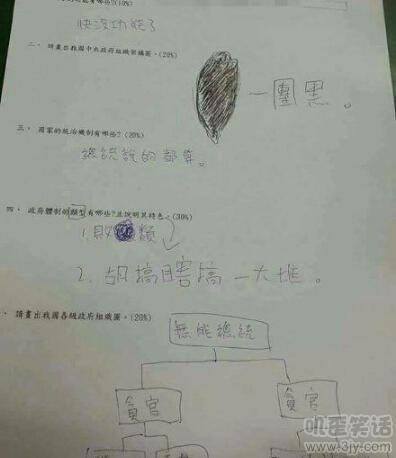 有哪些?(10%)
快沒功能了
二、請畫出我國中央政府組織架構圖。(20%)
一團黑。
三、國家的統治機制有哪些?(20%)
總統說的都算。
四、政府體制的類型有哪些?並說明其特色。(30%)
1.敗類
2.胡搞瞎搞一大堆。
、請畫出我國各級政府組織圖。(20%)
無能總統
貪官 貪官
叽歪笑话
www.3jy.com